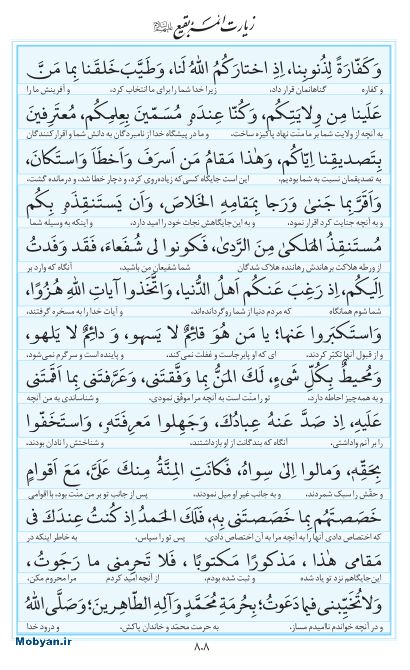 زیارت ائمه بقیع علیهم السلام
وَکَفَّارَةً لِذُنُوبِنا، اِذِ اخْتارَکُمُ اللّٰهُ لَنا، وَطَیَّبَ خَلْقَنا بِما مَنَّ
و کفاره گناهانمان قرار داد، زیرا خدا شما را برای ما انتخاب کرد، و آفرینش ما را
عَلَیْنا مِنْ وِلایَتِکُمْ، وَکُنَّا عِنْدَهُ مُسَمّینَ بِعِلْمِکُمْ، مُعْتَرِفینَ
به آنچه از ولایت شما بر ما منّت نهاد پاکیزه ساخت، و ما در پیشگاه خدا از نامبردگان به دانش شما و اقرار کنندگان
بِتَصْدیقِنا اِیَّاکُمْ، وَهٰذا مَقامُ مَنْ اَسْرَفَ وَاَخْطَاَ وَاسْتَکانَ،
به تصدیقمان نسبت به شما بودیم، این است جایگاه کسی‌که زیاده‌روی کرد، و دچار خطا شد، و درمانده گشت،
وَاَقَرَّ بِما جَنیٰ وَرَجا بِمَقامِهِ الْخَلاصَ، وَاَنْ یَسْتَنْقِذَهُ بِکُمْ
و به آنچه جنایت کرد اقرار نمود، و به این‌جایگاهش نجات خود را امید دارد، و اینکه به وسیله شما
مُسْتَنْقِذُ الْهَلْکیٰ مِنَ الرَّدیٰ، فَکُونُوا لی شُفَعاءَ، فَقَدْ وَفَدْتُ
از ورطه هلاکت برهاندش رهاننده هلاک شدگان شما شفیعان من باشید، آنگاه که وارد بر
اِلَیْکُمْ، اِذْ رَغِبَ عَنْکُمْ اَهْلُ الدُّنْیا، وَاتَّخَذُوا آیاتِ اللّٰهِ هُزُوًا،
شما شوم همانگاه که مردم دنیا از شما روگردانده‌اند، و آیات خدا را به مسخره گرفتند،
وَاسْتَکْبَرُوا عَنْها؛ یا مَنْ هُوَ قائِمٌ لا یَسْهُو، وَ دائِمٌ لا یَلْهُو،
و از قبول آنها تکبّر کردند. ای که او پابرجاست و غفلت نمی‌کند. و پاینده است و سرگرم نمی‌شود.
وَمُحیطٌ بِکُلِّ شَیْءٍ، لَکَ الْمَنُّ بِما وَفَّقْتَنی، وَعَرَّفْتَنی بِما اَقَمْتَنی
و به همه‌چیز احاطه دارد، تو را منّت است به آنچه مرا موفق نمودی، و شناساندی به من آنچه
عَلَیْهِ، اِذْ صَدَّ عَنْهُ عِبادُکَ، وَجَهِلُوا مَعْرِفَتَهُ، وَاسْتَخَفُّوا
را بر آنم واداشتی، آنگاه که بندگانت از او بازداشتند. و شناختش را نادان بودند.
بِحَقِّهِ، وَمالُوا اِلیٰ سِواهُ، فَکانَتِ الْمِنَّةُ مِنْکَ عَلَیَّ، مَعَ اَقْوامٍ
و حقّش را سبک شمردند، و به جانب غیر او میل نمودند، پس از جانب تو بر من منّت بود، با اقوامی
خَصَصْتَهُمْ بِما خَصَصْتَنی بِهِ، فَلَکَ الْحَمْدُ اِذْ کُنْتُ عِنْدَکَ فی
که اختصاص دادی آنها را به آنچه مرا به آن اختصاص دادی، پس تو را سپاس، به خاطر اینکه در
مَقامی هٰذا، مَذْکُورًا مَکْتُوبًا، فَلا تَحْرِمْنی ما رَجَوْتُ،
این‌جایگاهم نزد تو یاد شده و ثبت شده بودم، از آنچه امید کردم مرا محروم مکن،
وَلا تُخَیِّبْنی فیما دَعَوْتُ؛ بِحُرْمَةِ مُحَمَّدٍ وَآلِهِ الطَّاهِرینَ؛ وَصَلَّی اللّٰهُ
و در آنچه خواندم ناامیدم مساز، به حرمت محمّد و خاندان پاکش، و درود خدا
۸۰۸
Mobyan.ir